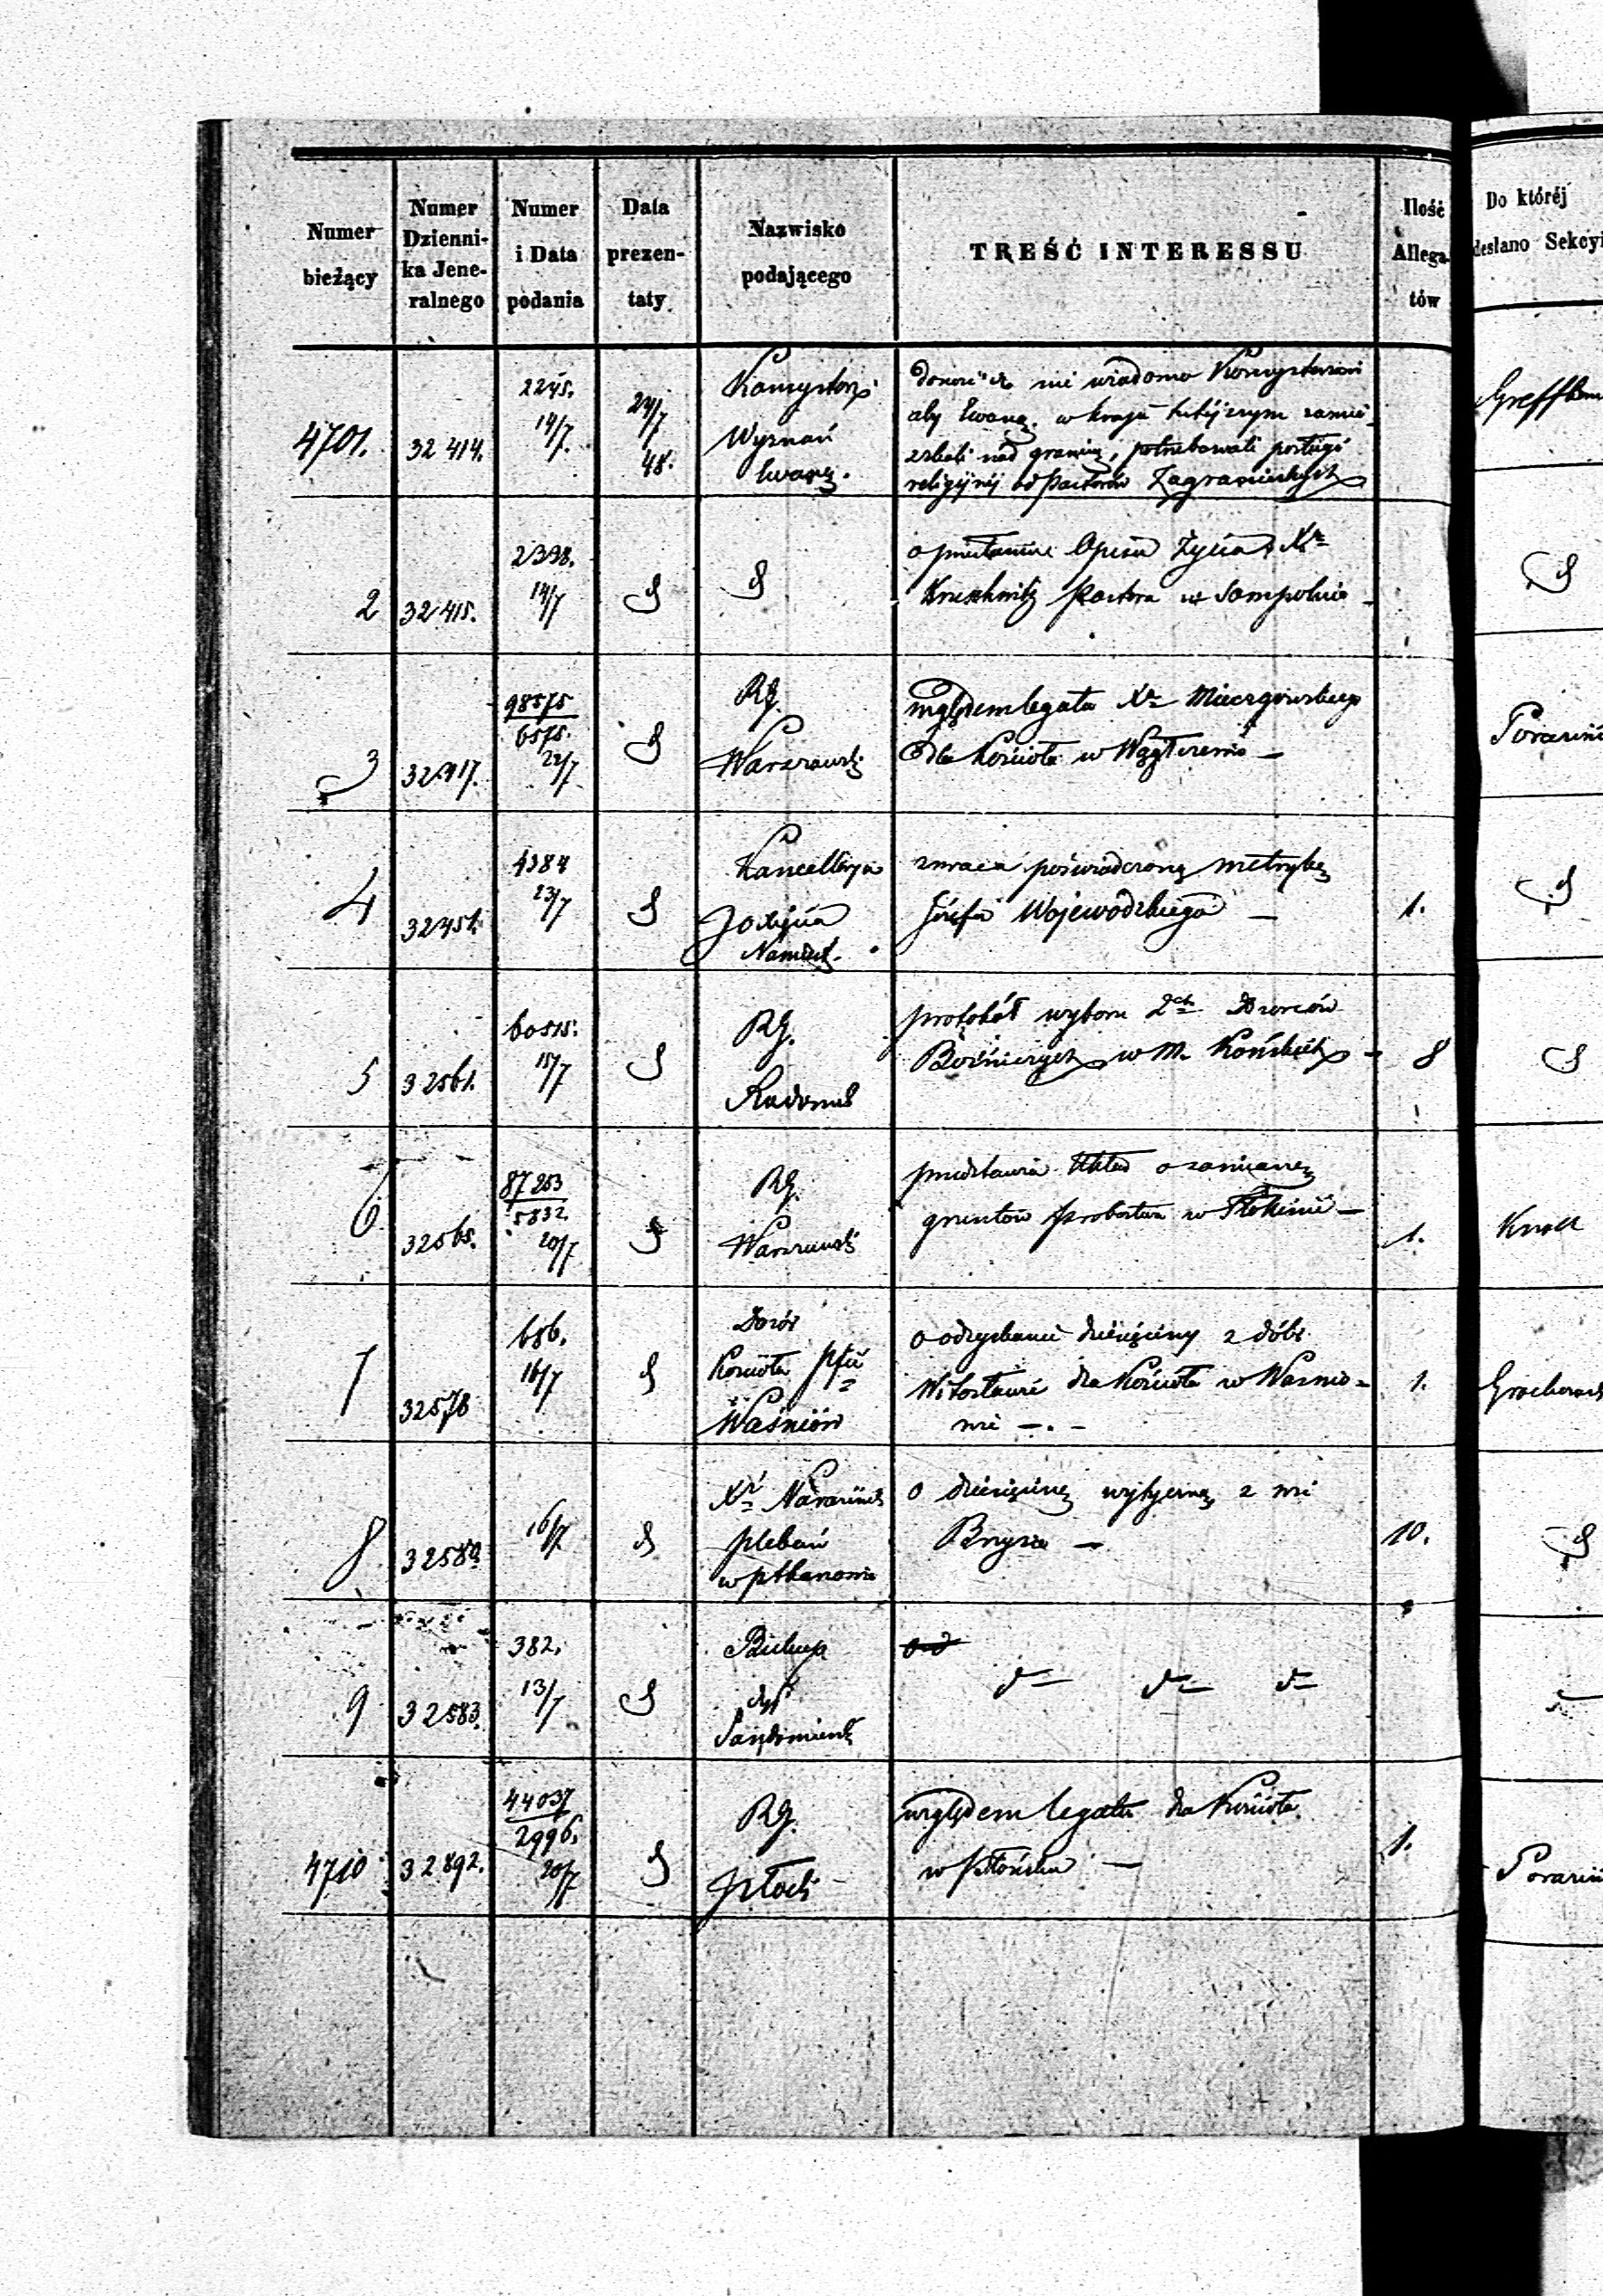 Numer bieżący | Numer Dziennika Jeneralnego | Numer i Data podania | Data prezentaty | Nazwisko podającego | TREŚĆ INTERESSU | Ilość Allegatów | Do któréj desłano Sekcyi
4701. | 32414. | 2245. 14/7. | 24/7 48. | Konsystorz Wyznań Ewang. | donosi że nie wiadomo Konsystorzowi
aby Ewang. w kraju tutéjszym zamie-
szkali nad granicą, potrzebowali posługi
religijnéj od pastorów Zagranicznych
2 | 32415. | 2398. 14/7 | d | d | o przesłanie Opisu Życia Xa
Pastora w Sompolnie | d
3 | 32417. | 98575/6575. 22/7 | d | RG. Warszawski | względem legatu Xa
dla Kościoła w
4 | 32451. | 4384 23/7 | d | Kancellarya Xięcia Namiest. | zwraca poświadczoną metrykę
Józefa Wojewodzkiego — | 1. | d
5 | 32561. | 60515. 15/7 | d | RG. Radomski | protokół wyboru 2ch Dozorców
Bożniczych w M. Końskich — | 8 | d
6. | 32565. | 87253/5832. 20/7 | d | RG. Warszawski | przedstawia Układ o zamianę
gruntów probostwa w — | 1. | Knoll
7 | 32578 | 686. 16/7 | d | Dozór Kościoła Pfii Waśniów | o odzyskanie dziesięciny z dóbr
dla Kościoła w Wasnio-
wie —.— | 1.
8 | 32580. | 16/7 | d | Xd pleban | o dziesięcinę wytyczną z wsi
— | 10. | d
9 | 32583. | 382. 13/7 | d | Biskup dyi Sandomierski | do do do | d
4710 | 32892. | 44037/2996. 20/7 | d | RG. Płocki | względem legatu dla Kościoła
w Płońsku — | 1.